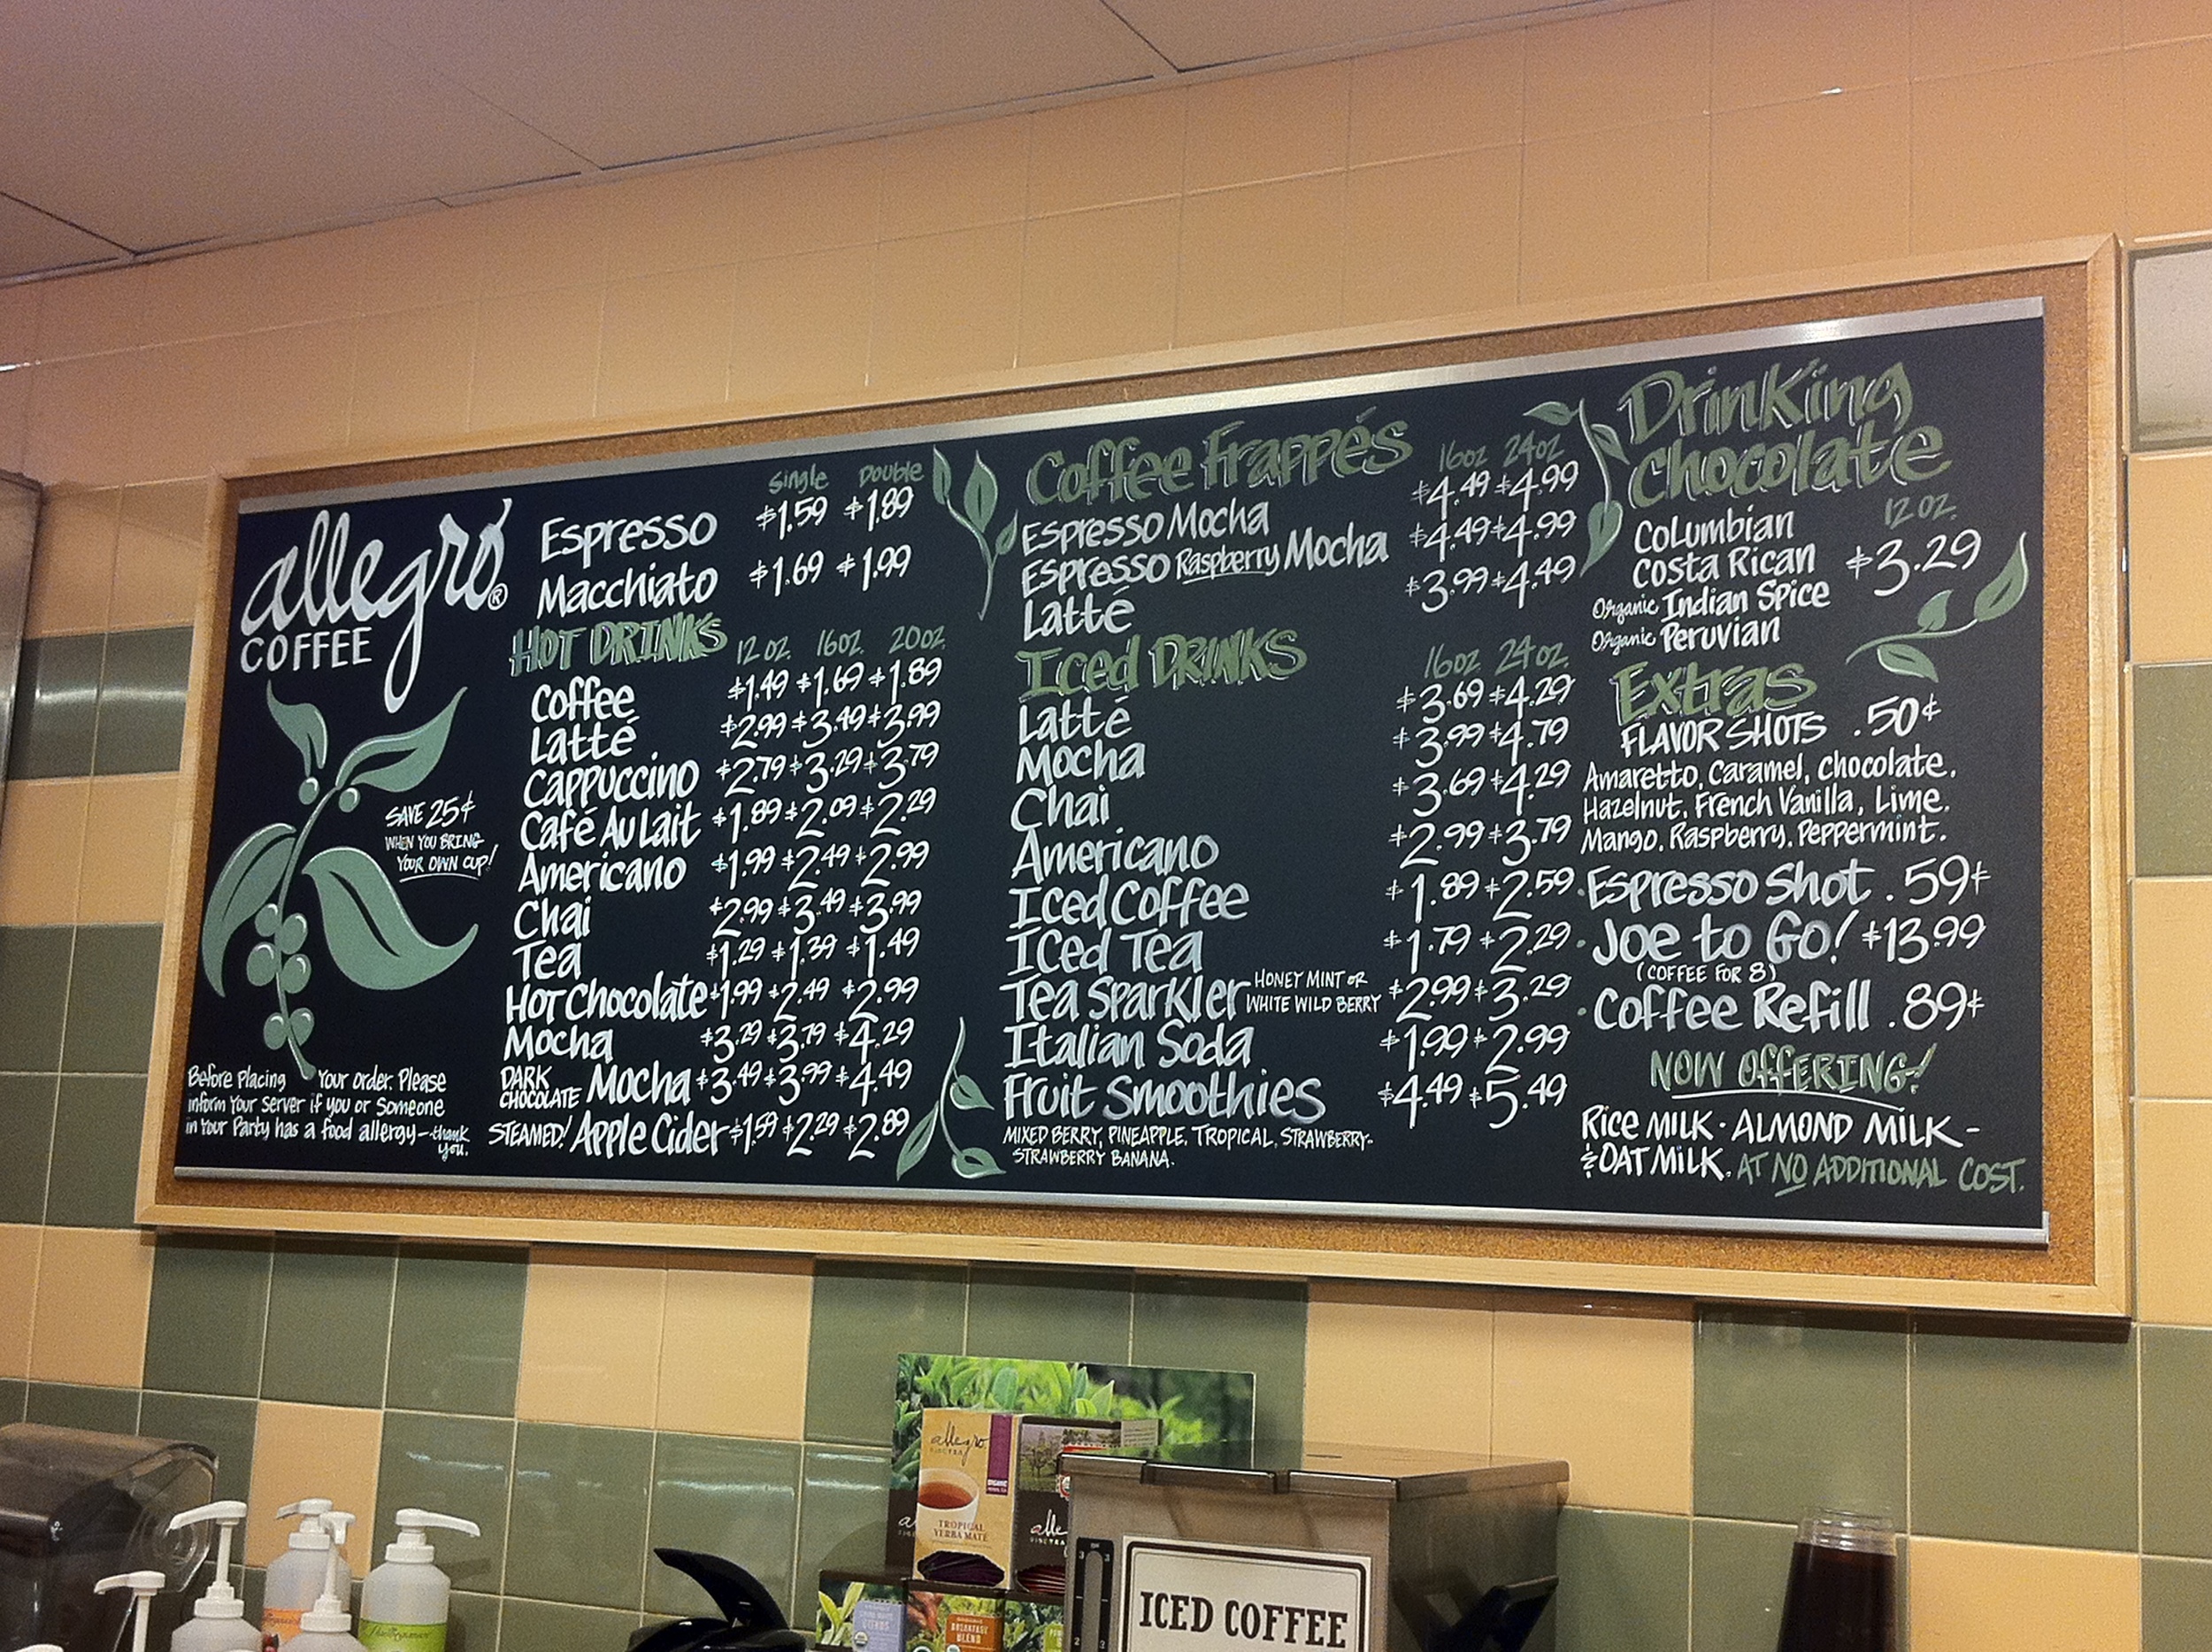 allegro®
COFFEE
SAVE 25¢
WHEN YOU BRING
YOUR OWN CUP!
Before Placing Your order. Please
inform Your Server if you or Someone
in Your Party has a food allergy—thank
you.
Single Double
Espresso $1.59 $1.89
Macchiato $1.69 $1.99
HOT DRINKS 12 oz. 16oz. 20oz.
Coffee $1.49 $1.69 $1.89
Latté $2.99 $3.49 $3.99
Cappuccino $2.79 $3.29 $3.79
Café Au Lait $1.89 $2.09 $2.29
Americano $1.99 $2.49 $2.99
Chai $2.99 $3.49 $3.99
Tea $1.29 $1.39 $1.49
Hot Chocolate $1.99 $2.49 $2.99
Mocha $3.29 $3.79 $4.29
DARK CHOCOLATE Mocha $3.49 $3.99 $4.49
STEAMED! Apple Cider $1.59 $2.29 $2.89
Coffee Frappés 16oz 24oz
Espresso Mocha $4.49 $4.99
Espresso Raspberry Mocha $4.49 $4.99
Latté $3.99 $4.49
Iced DRINKS 16oz. 24oz.
Latté $3.69 $4.29
Mocha $3.99 $4.79
Chai $3.69 $4.29
Americano $2.99 $3.79
Iced Coffee $1.89 $2.59
Iced Tea $1.79 $2.29
Tea Sparkler HONEY MINT or WHITE WILD BERRY $2.99 $3.29
Italian Soda $1.99 $2.99
Fruit Smoothies $4.49 $5.49
MIXED BERRY, PINEAPPLE, TROPICAL, STRAWBERRY-
STRAWBERRY BANANA.
Drinking
Chocolate
12 oz.
Columbian
Costa Rican $3.29
Organic Indian Spice
Organic Peruvian
Extras
FLAVOR SHOTS .50¢
Amaretto, Caramel, Chocolate,
Hazelnut, French Vanilla, Lime,
Mango, Raspberry, Peppermint.
• Espresso Shot .59¢
• Joe to Go! $13.99
(COFFEE FOR 8)
• Coffee Refill .89¢
NOW OFFERING!
Rice MILK • ALMOND MILK -
& OAT MILK. AT NO ADDITIONAL COST.
allegro
TROPICAL
YERBA MATE
BREAKFAST
BLEND
ICED COFFEE